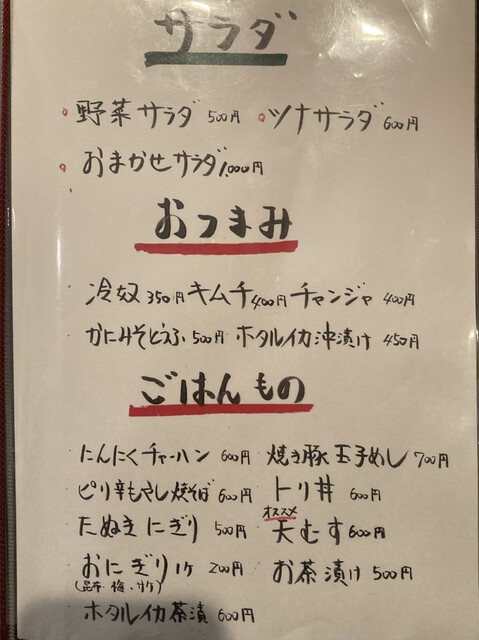 サラダ
野菜サラダ 500円 ツナサラダ 600円
おまかせサラダ 1,000円
おつまみ
冷奴 350円 キムチ 400円 チャンジャ 400円
かにみそとうふ 500円 ホタルイカ沖漬け 450円
ごはんもの
にんにくチャーハン 600円 焼き豚玉子めし 700円
ピリ辛もやし焼そば 600円 トリ丼 600円
オススメ
たぬきにぎり 500円 天むす 600円
おにぎり 1ケ 200円 お茶漬け 500円
(昆布・梅・サケ)
ホタルイカ茶漬 600円